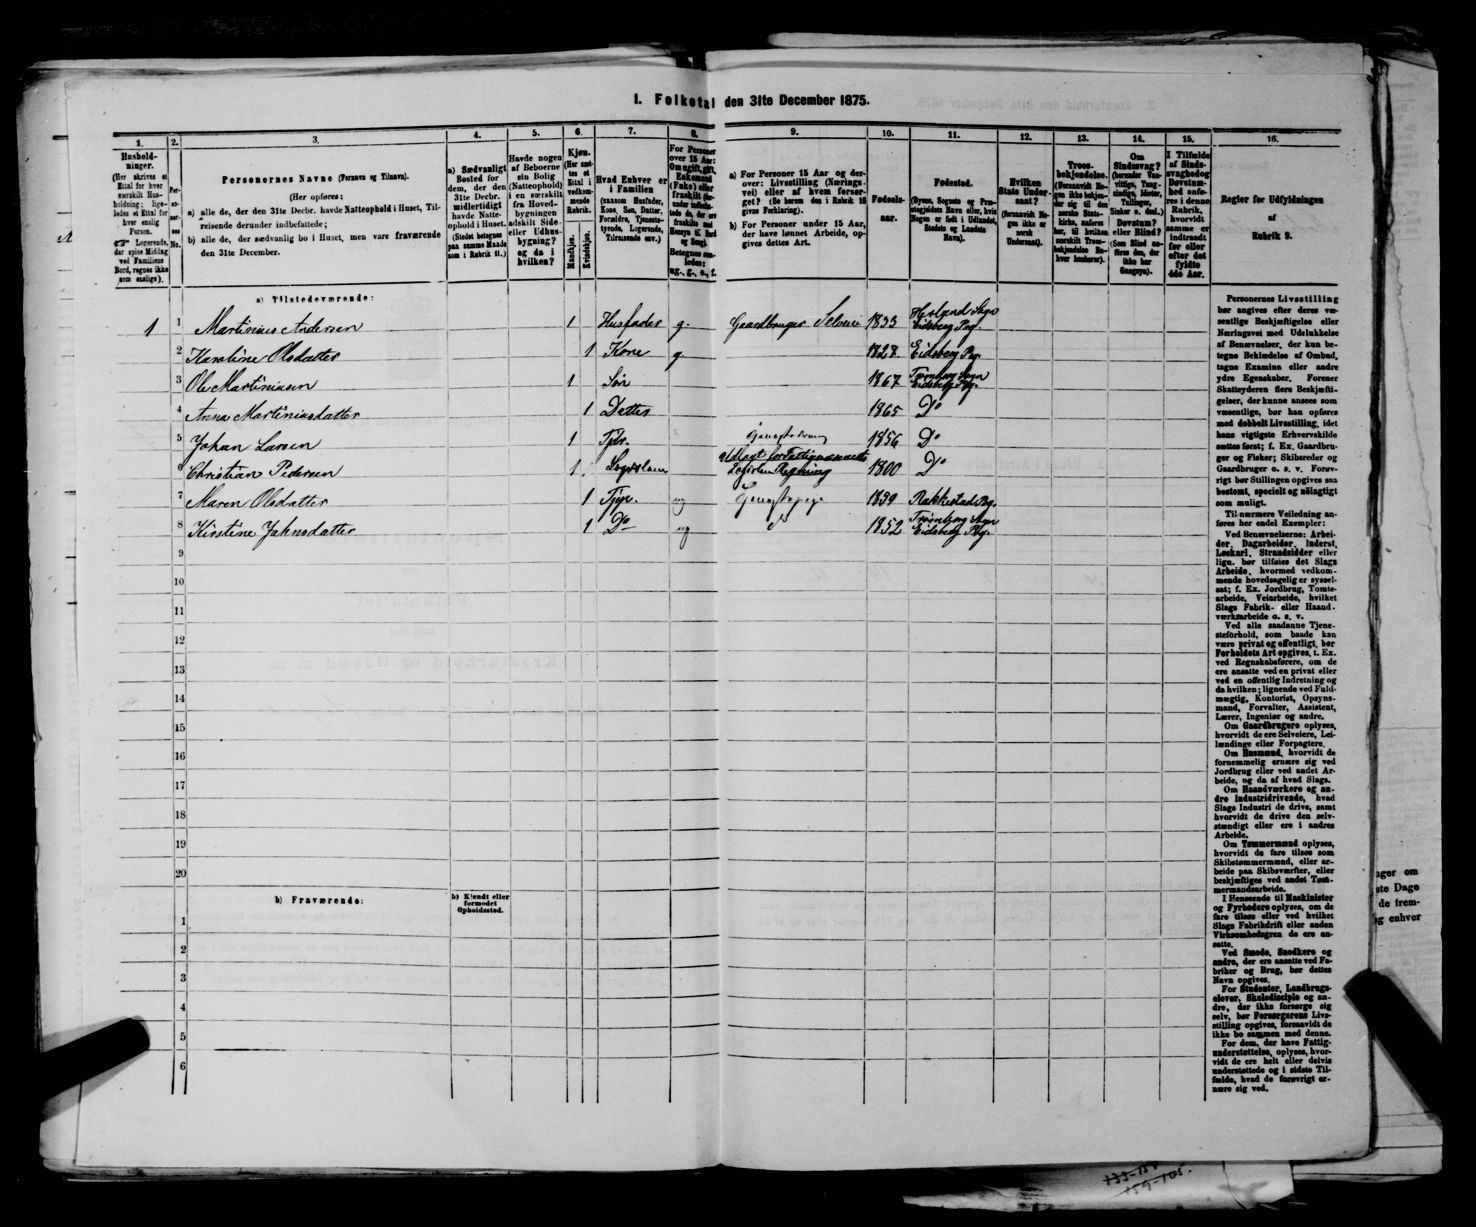 1. Folketal den 31te December 1875.
1.
2.
3.
4.
5.
6.
7.
8.
9.
10.
11.
12.
13.
14.
15.
16.
Hushold-
ninger.
(Her skrives et
Ettal for hver
særskilt Hus-
holdning; lige-
ledes et Ettal for
hver enslig
Person.
Logerende,
der spise Middag
ved Familiens
Bord, regnes ikke
som enslige).
Per-
so-
ner-
nes
No.
Personernes Navne (Fornavn og Tilnavn).
(Her opføres:
a) alle de, der den 31te Decbr. havde Natteophold i Huset, Til-
reisende derunder indbefattede;
b) alle de, der sædvanlig bo i Huset, men vare fraværende
den 31te December.
a) Sædvanligt
Bosted for
dem, der den
31te Decbr.
midlertidigt
havde Natte-
ophold i Huset.
(Stedet betegnes
paa samme Maade
som i Rubrik 11.)
Havde nogen
af Beboerne
sin Bolig
(Natteophold)
i en særskilt
fra Hoved-
bygningen
adskilt Side-
eller Udhus-
bygning?
og da i
hvilken?
Kjøn.
(Her sæt-
tes et
Ettal i
vedkom-
mende
Rubrik.
Mandkjøn.
Kvindekjøn.
Hvad Enhver er
i Familien
(saasom Husfader,
Kone, Søn, Datter,
Forældre, Tjenest-
tyende, Logerende,
Tilreisende osv.)
For Personer
over 15 Aar:
Om ugift, gift,
Enkemand
(Enke) eller
fraskilt
Betegnes saa-
ledes:
ug., g., e., f.
a) For Personer 15 Aar og der-
over: Livsstilling (Nærings-
vei) eller af hvem forsør-
get? (Se herom den i Rubrik 16
givne Forklaring).
b) For Personer under 15 Aar,
der have lønnet Arbeide, op-
gives dettes Art.
Fødsels-
aar.
Fødested.
(Byens, Sognets og Præ-
stegjeldets Navn eller, hvis
Nogen er født i Udlandet,
Stedets og Landets
Navn).
Hvilken
Stats Under-
saat?
(forsaavidt No-
gen ikke er
norsk
Undersaat).
Troes-
bekjendelse.
(Forsaavidt No-
gen ikke bekjen-
der sig til den
norske Stats-
kirke, anføres
her, til hvilken
særskilt Troes-
bekjendelse En-
hver henhører).
Om
Sindssvag?
(herunder Van-
vittige, Tung-
sindige, Idioter,
Tullinger,
Sinker o. desl.)
Døvstum?
eller Blind?
(Som Blind an-
føres den, der
ikke har
Gangsyn).
I Tilfælde
af Sinds-
svaghed og
Døvstum-
hed anfø-
res i denne
Rubrik,
hvorvidt
samme er
indtraadt
før eller
efter det
fyldte
4de Aar.
Regler for Udfyldningen
af
Rubrik 9.
a) Tilstedeværende:
1 1 Martinius Andersen 1 Husfader g. Gaardbruger Selveier 1833 Eidsberg Pg.
2 Karoline Olsdatter 1 Kone g 1827 Eidsberg Pg.
3 Ole Martiniusen 1 Søn 1867 Trømborg Sogn Eidsberg Pg.
4 Anna Martiniusdatter 1 Datter 1865 Do
5 Johan Larsen 1 Tjdr. 1856 Do
6 Christian Pedersen 1 Lægdslem Lægdslem Regning 1800 Do
7 Maren Olsdatter 1 Tjpi. ug 1859 Rakkestad Pg.
8 Kirstine Johnsdatter 1 Do ug 1852 Trømborg Sogn Eidsberg Pg.
9
10
11
12
13
14
15
16
17
18
19
20
b) Fraværende:
b) Kjendt eller
formodet
Opholdssted.
1
2
3
4
5
6
Personernes Livsstilling
bør angives efter deres væ-
sentlige Beskjæftigelse eller
Næringsvei med Udelukkelse
af Benævnelser, der kun be-
tegne Beklædelse af Ombud,
tagne Examina eller andre
ydre Egenskaber. Forener
Skatteyderen flere Beskjæfti-
gelser, der kunne ansees som
væsentlige, bør han opføres
med dobbelt Livsstilling, idet
hans vigtigste Erhvervskilde
sættes først; f. Ex. Gaardbru-
ger og Fisker; Skibsreder og
Gaardbruger o. s. v. Forøv-
rigt bør Stillingen opgives saa
bestemt, specielt og nøiagtigt
som muligt.
Til nærmere Veiledning an-
føres her endel Exempler:
Ved Benævnelserne: Arbei-
der, Dagarbeider, Inderst,
Løskarl, Strandsidder eller
lign. bør tilføies det Slags
Arbeide, hvormed vedkom-
mende hovedsagelig er syssel-
sat; f. Ex. Jordbrug, Tomte-
arbeide, Veiarbeide, hvilket
Slags Fabrik- eller Haand-
værksarbeide o. s. v.
Ved alle saadanne Tjene-
steforhold, som baade kan
være privat og offentligt, bør
Forholdets Art opgives, t. Ex.
ved Regnskabsførere, om de
ere ansatte ved en privat eller
ved en offentlig Indretning og
da hvilken; lignende ved Fuld-
mægtig, Kontorist, Opsyns-
mand, Forvalter, Assistent,
Lærer, Ingeniør og andre.
Om Gaardbrugere oplyses,
hvorvidt de ere Selveiere, Lei-
lændinge eller Forpagtere.
Om Husmænd, hvorvidt de
fornemmelig ernære sig ved
Jordbrug eller ved andet Ar-
beide, og da af hvad Slags.
Om Haandværkere og an-
dre Industridrivende, hvad
Slags Industri de drive, samt
hvorvidt de drive den selv-
stændigt eller ere i andres
Arbeide.
Om Tømmermænd oplyses,
hvorvidt de fare tilsøs som
Skibstømmermænd, eller ar-
beide paa Skibsværfter, eller
beskjæftiges ved andet Tøm-
mermandsarbeide.
I Henseende til Maskinister
og Fyrbødere oplyses, om de
fare tilsøs eller ved hvilket
Slags Fabrikdrift eller anden
Virksomhedsgren de ere an-
satte.
Ved Smede, Snedkere og
andre, der ere ansatte ved Fa-
briker og Brug, bør dettes
Navn opgives.
For Studenter, Landbrugs-
elever, Skoledisciple og an-
dre, der ikke forsørge sig
selv, bør Forsørgerens Livs-
stilling opgives, forsaavidt de
ikke bo sammen med denne.
For dem, der have Fattig-
understøttelse, oplyses, hvor-
vidt de ere helt eller delvis
understøttede og i sidste Til-
fælde, hvad de forøvrigt er-
nære sig ved.